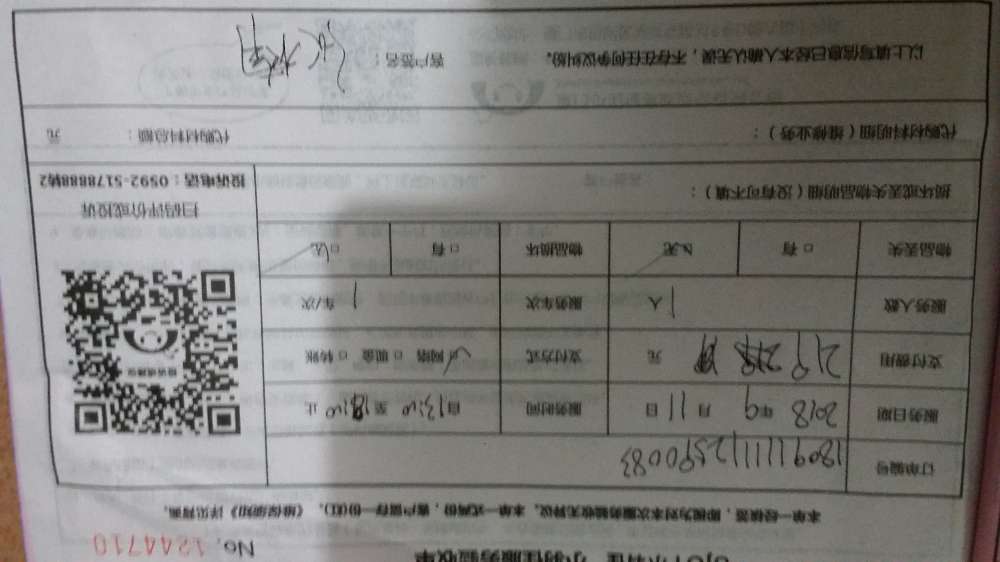 小羽佳服务验收单
No. 1244710
本单一经签署，即视为对本次服务验收无异议。本单一式两份，客户留存一份(红)，《维保须知》详见背面。
订单编号 18091111112590083
服务日期 2018 年 9 月 11 日 服务时间 自 13:10 至 18:10 止
支付费用 219 元 支付方式 ☑ 网络 □ 现金 □ 转账
服务人数 1 人 服务车次 1 车/次
物品丢失 □ 有 ☑ 无 物品损坏 □ 有 ☑ 无
扫码评价或投诉
投诉电话：0592-5178888转2
损坏或丢失物品明细（没有可不填）：
代购材料明细（维修业务）： 代购材料总额： 元
以上填写信息已经本人确认无误，不存在任何争议纠纷。 客户签名：